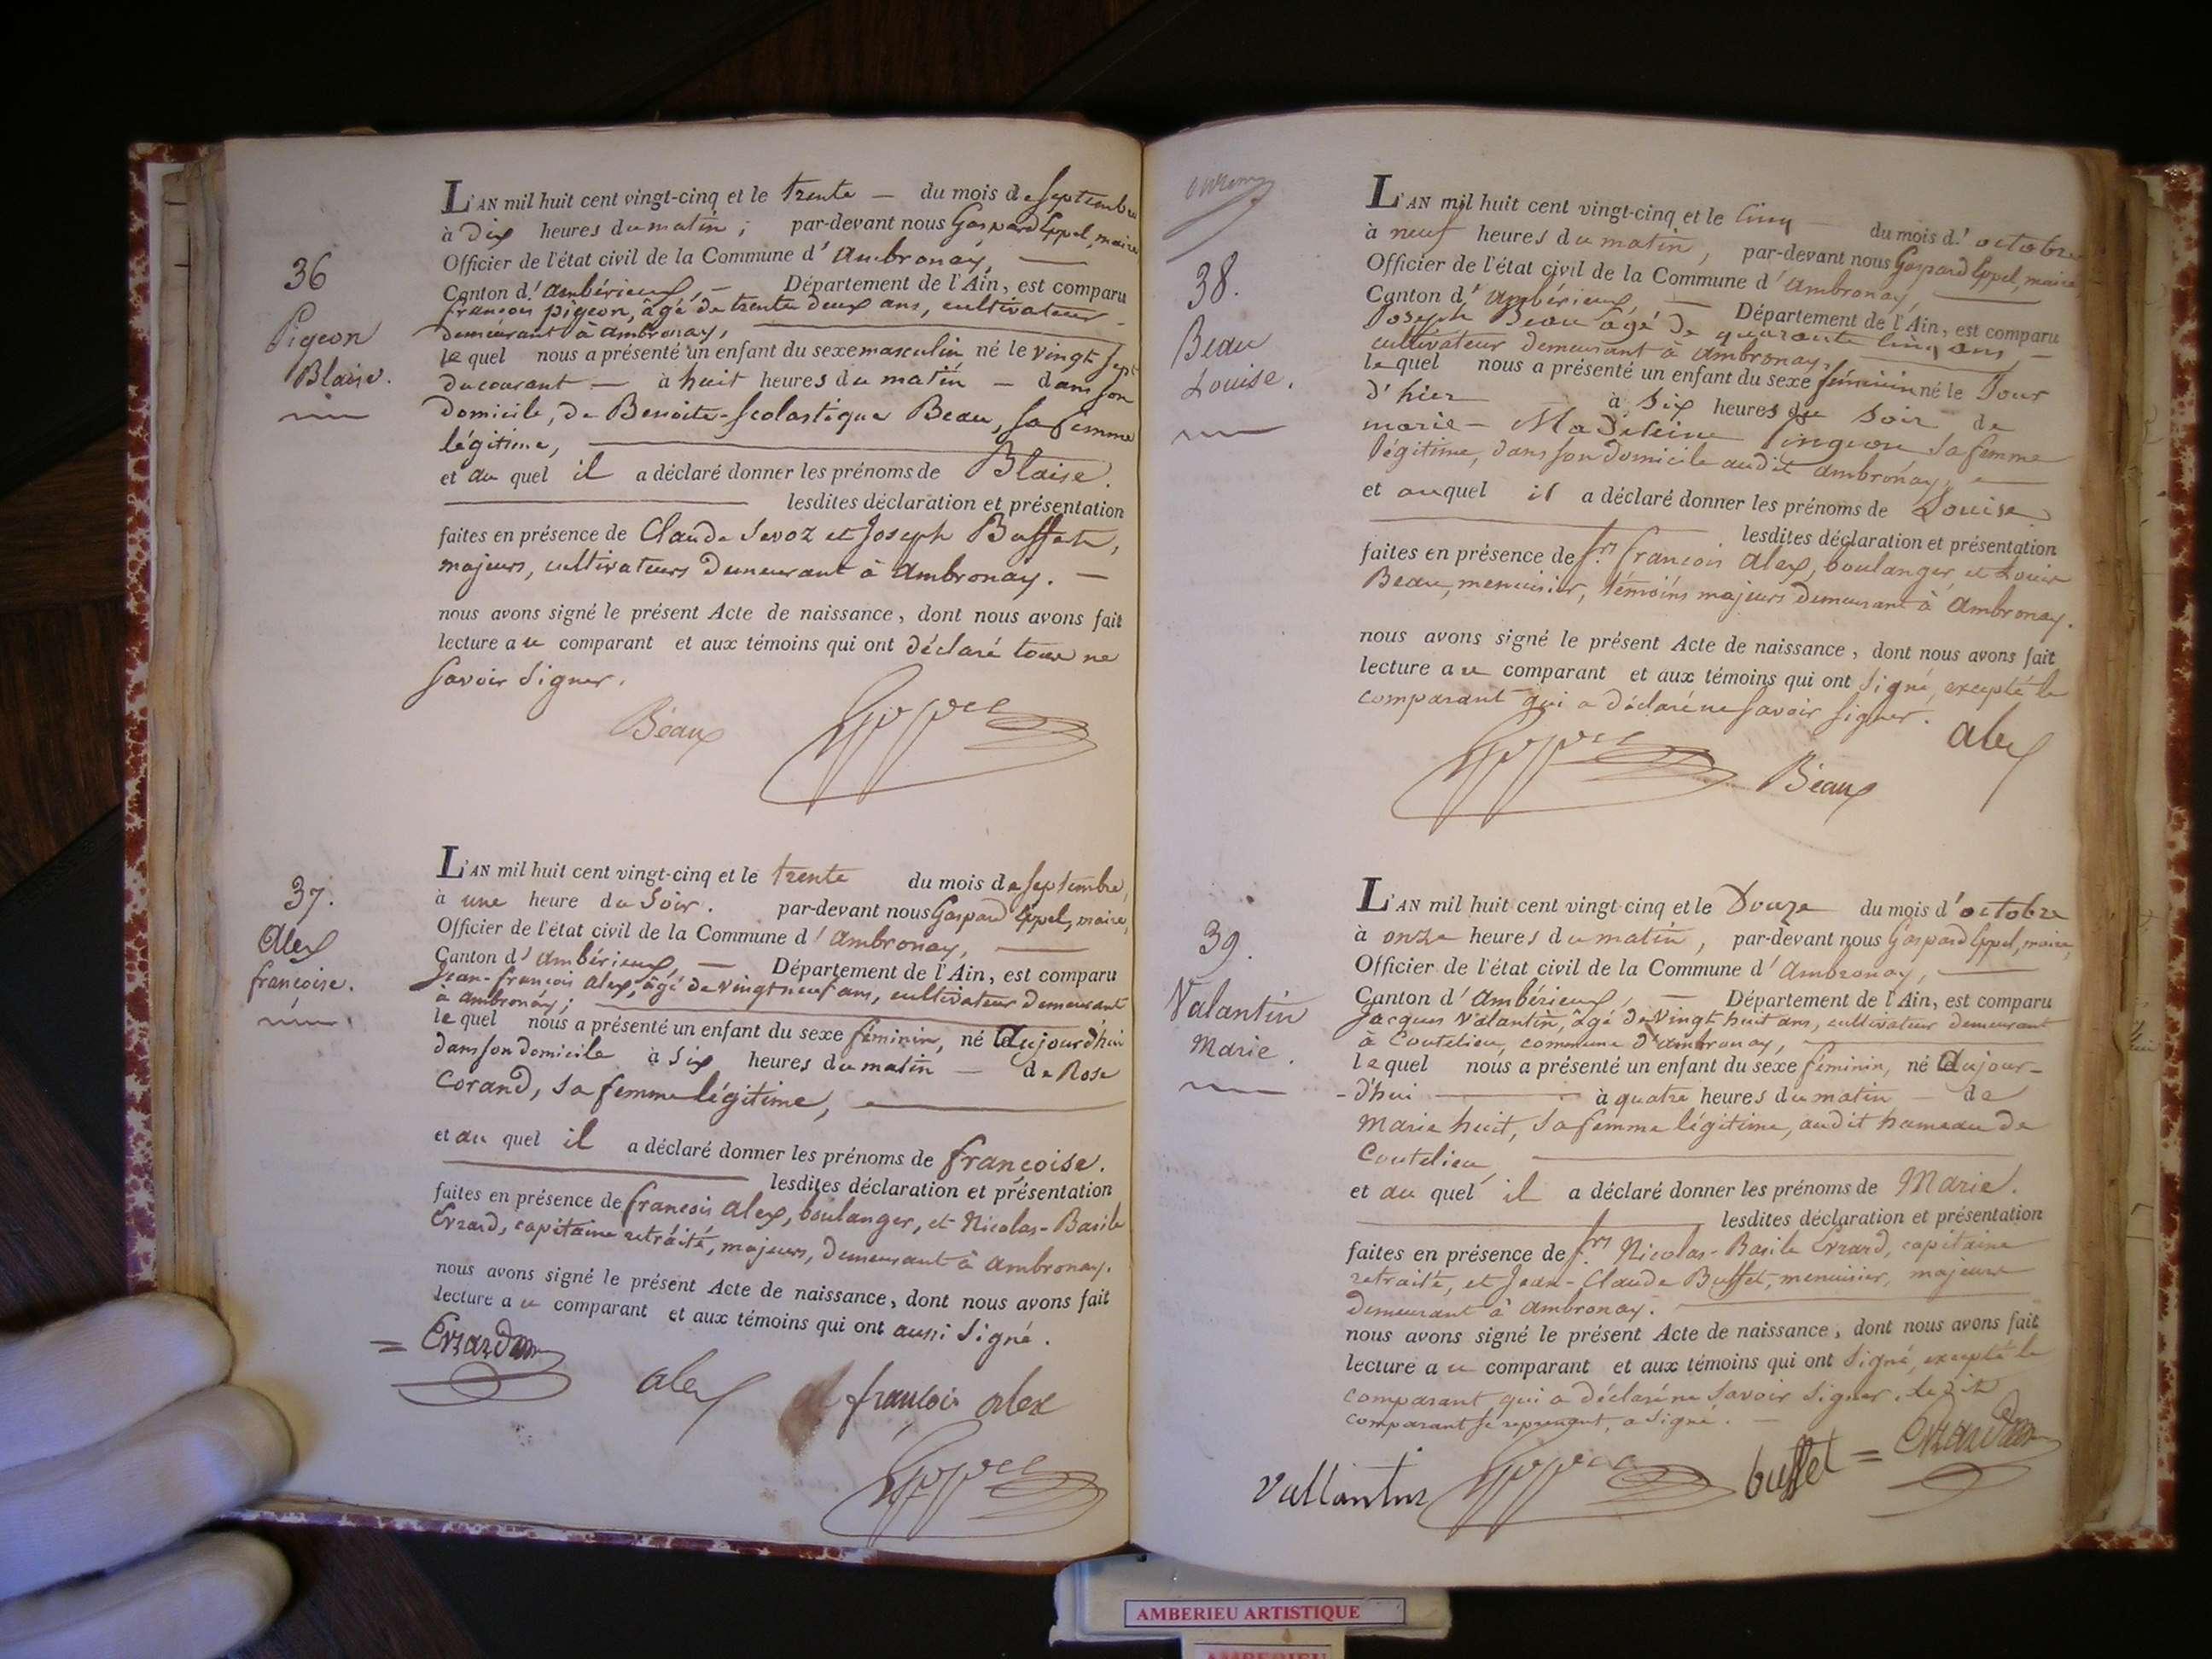 36
Pigeon
Blaise.
L'AN mil huit cent vingt-cinq et le trente — du mois de septembre
à dix heures du matin ; par-devant nous Gaspard Eppel, maire
Officier de l'état civil de la Commune d'Ambronay, —
Canton d'ambérieux, — Département de l'Ain, est comparu
françois pigeon, âgé de trente deux ans, cultivateur
demeurant à ambronay,
lequel nous a présenté un enfant du sexe masculin né le vingt sept
du courant — à huit heures du matin — dans son
domicile, de Benoite-Scolastique Beau, sa femme
légitime,
et au quel il a déclaré donner les prénoms de Blaise.
lesdites déclaration et présentation
faites en présence de Claude Savoz et Joseph Buffet,
majeurs, cultivateurs demeurant à Ambronay. —
nous avons signé le présent Acte de naissance, dont nous avons fait
lecture au comparant et aux témoins qui ont déclaré tous ne
savoir signer.
Beaux
37.
Alex
françoise.
L'AN mil huit cent vingt-cinq et le trente du mois de septembre,
à une heure du soir. par-devant nous Gaspard Eppel, maire,
Officier de l'état civil de la Commune d'Ambronay, —
Canton d'ambérieux, — Département de l'Ain, est comparu
Jean-françois alex, âgé de vingt neuf ans, cultivateur demeurant
à ambronay ;
lequel nous a présenté un enfant du sexe féminin, né aujourd'hui
dans son domicile à six heures du matin — de Rose
Corand, sa femme légitime,
et au quel il a déclaré donner les prénoms de françoise.
lesdites déclaration et présentation
faites en présence de françois alex, boulanger, et Nicolas-Basile
Evrard, capitaine retraité, majeurs, demeurant à ambronay.
nous avons signé le présent Acte de naissance, dont nous avons fait
lecture au comparant et aux témoins qui ont aussi signé.
= Evrard
alex
françois alex
38.
Beau
Louise.
L'AN mil huit cent vingt-cinq et le cinq — du mois d'octobre
à neuf heures du matin, par-devant nous Gaspard Eppel, maire,
Officier de l'état civil de la Commune d'ambronay,
Canton d'ambérieux, — Département de l'Ain, est comparu
Joseph Beau âgé de quarante cinq ans, —
cultivateur demeurant à ambronay,
lequel nous a présenté un enfant du sexe féminin né le Jour
d'hier à six heures du soir de
marie-Madeleine pingeon sa femme
légitime, dans son domicile audit ambronay,
et auquel il a déclaré donner les prénoms de Louise
lesdites déclaration et présentation
faites en présence de Srs françois Alex, boulanger, et Louis
Beau, menuisier, témoins majeurs demeurant à Ambronay.
nous avons signé le présent Acte de naissance, dont nous avons fait
lecture au comparant et aux témoins qui ont signé, excepté le
comparant qui a déclaré ne savoir signer.
alex
Beaux
39.
Valantin
Marie.
L'AN mil huit cent vingt-cinq et le Douze du mois d'octobre
à onze heures du matin, par-devant nous Gaspard Eppel, maire,
Officier de l'état civil de la Commune d'Ambronay, —
Canton d'Ambérieux, — Département de l'Ain, est comparu
Jacques Valantin, âgé de vingt huit ans, cultivateur demeurant
à Coutelieu, commune d'ambronay,
lequel nous a présenté un enfant du sexe féminin, né aujour-
-d'hui à quatre heures du matin — de
Marie huit, sa femme légitime, audit hameau de
Coutelieu,
et au quel il a déclaré donner les prénoms de Marie.
lesdites déclaration et présentation
faites en présence de Srs Nicolas-Basile Evrard, capitaine
retraité, et Jean-Claude Buffet, menuisier, majeurs
demeurant à ambronay.
nous avons signé le présent Acte de naissance, dont nous avons fait
lecture au comparant et aux témoins qui ont signé, excepté le
comparant qui a déclaré ne savoir signer. ledit
comparant se reprenant, a signé. —
Vallantin
buffet = Evrard
AMBERIEU ARTISTIQUE
AMBERIEU